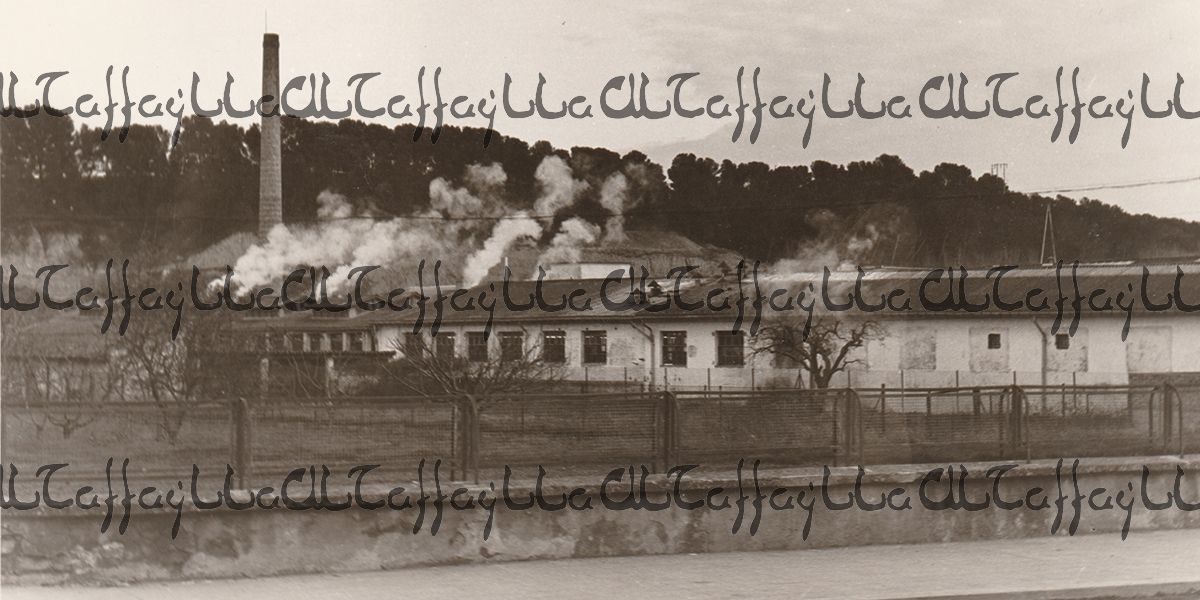 alTaffaylla alTaffaylla alTaffaylla alTaffayll
alTaffaylla alTaffaylla alTaffaylla alTaffayll
alTaffaylla alTaffaylla alTaffaylla alTaffayll